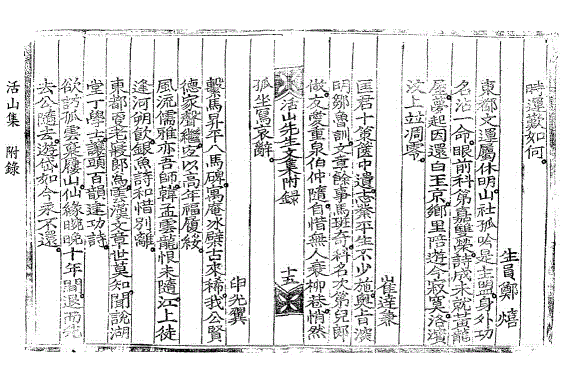 時運蔽如何
生員鄭熺
東都文運屬休明山社孤吟是主盟身外功
名沾一命眼前科第嘉雙榮詩成未就黃龍
屋夢起因還白玉京鄉里陪遊今寂寞洛濱
汶上竝凋零
崔達兼
匡君十策篋中遺志業平生不少施奧旨演
明鄒魯訓文章餘事馬班奇科名次第兒郎
做友愛重泉伯仲隨自惜無人乘柳帷悄然
孤坐寫哀辭
活山先生文集附錄
十五
申光翼
繫馬昇平八馬碑寓庵冰檗古來稀我公賢
德家聲繼更以高年福履綏
風流儒雅亦吾師韓孟雲龍恨未隨江上徒
逢河朔飲銀魚詩和惜別離
東都夏老廢郎爲雲漢文章世莫知聞說湖
堂丁學士讓頭百韻建功詩
欲訪孤雲葉屨山仙緣晼晚十年間退而先
去公隨去遊岱如今永不還
活山集 附錄